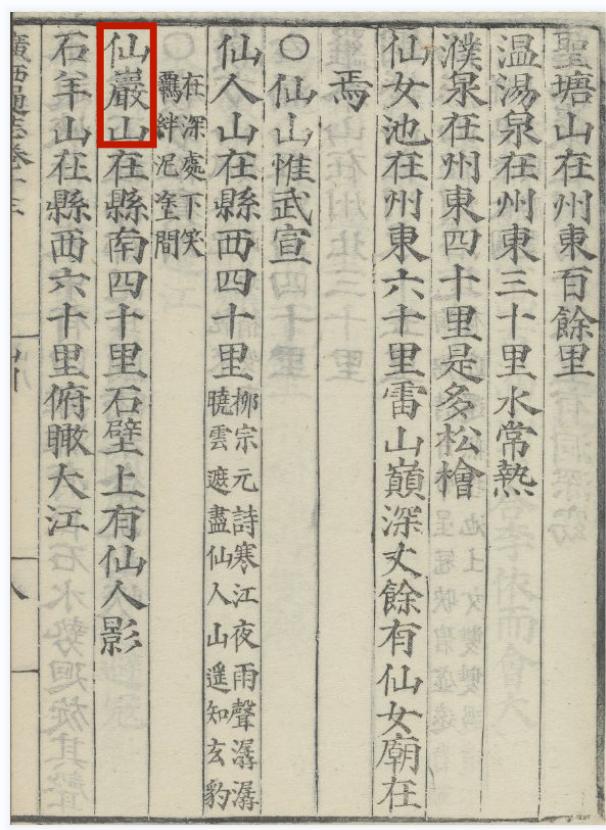 聖塘山在州東百餘里
温湯泉在州東三十里水常熱
濮泉在州東四十里是多松檜
仙女池在州東六十里雷山巔深丈餘有仙女廟在
焉
○仙山惟武宣
仙人山在縣西四十里柳宗元詩寒江夜雨聲潺潺
曉雲遮盡仙人山遥知玄豹
在深處下笑
羈絆泥塗間
仙巖山在縣南四十里石壁上有仙人影
石羊山在縣西六十里俯瞰大江
廣西通志卷十三
八